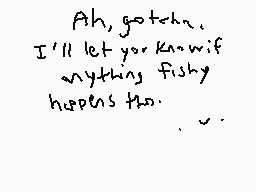 Ah, gotcha.
I'll let you know if
anything fishy
happens tho.
. v .